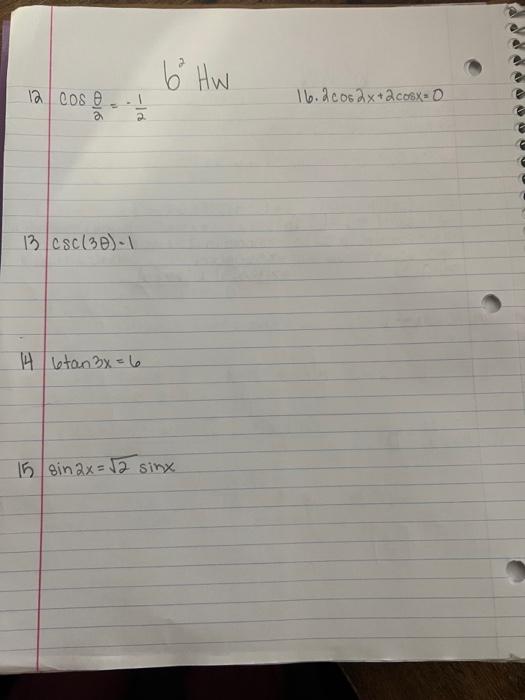 6² HW
12 cos θ/2 = -1/2
16. 2cos2x+2cosx=0
13 csc(3θ)-1
14 6tan3x=6
15 sin2x=√2 sinx